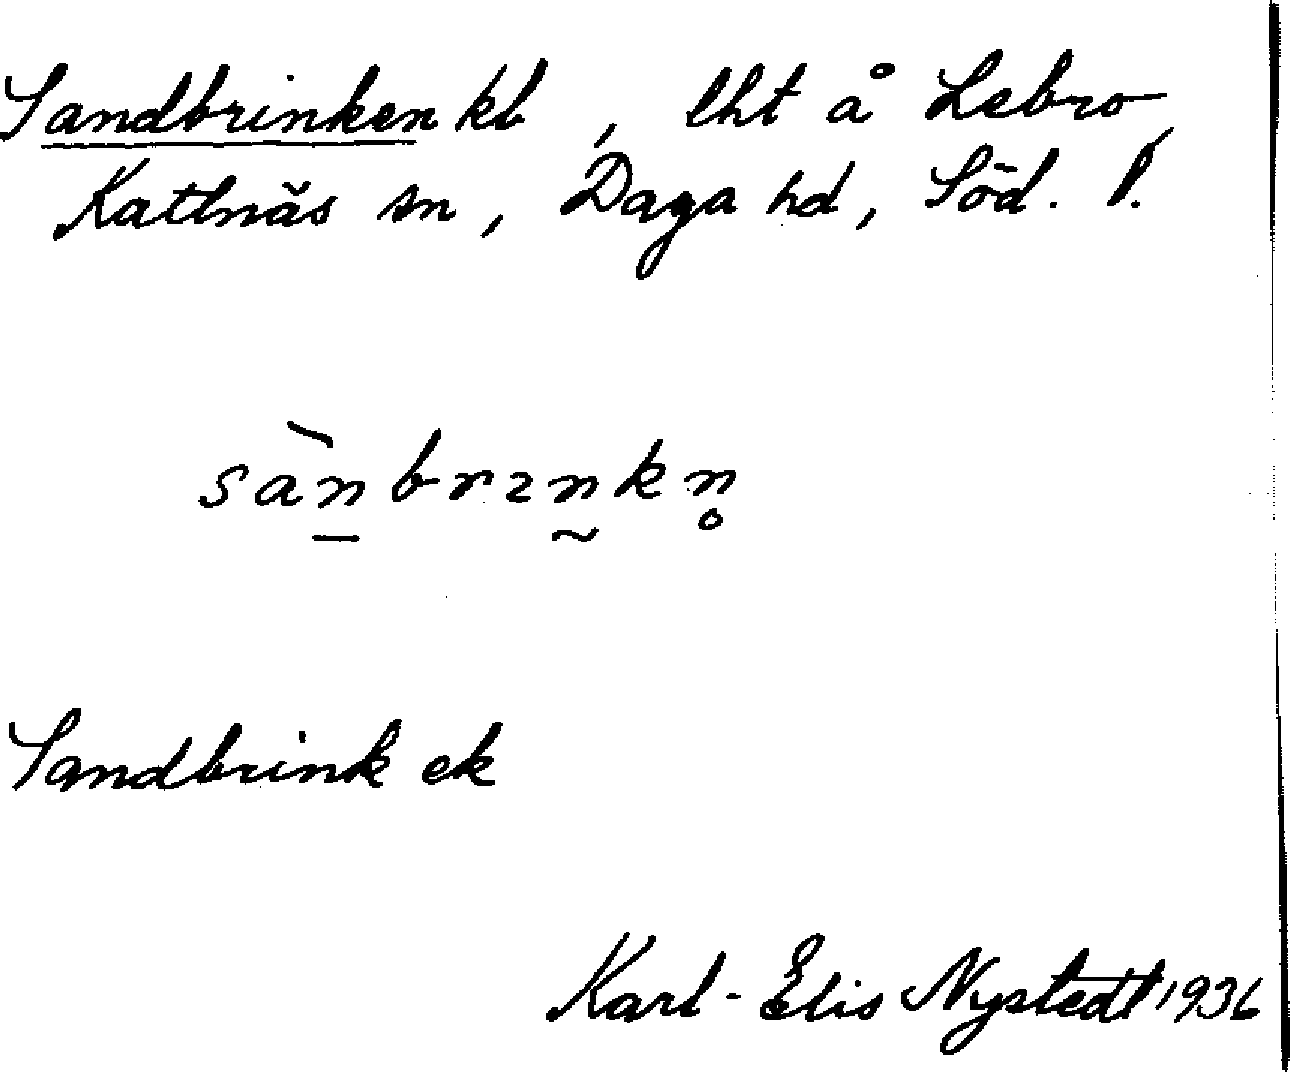 Sandbrinken kl , lht å Lebro
Kattnäs sn , Daga hd , Söd. l.
sàn̲brɪn̰kn̥
Sandbrink ek
Karl-Elis Nystedt 1936